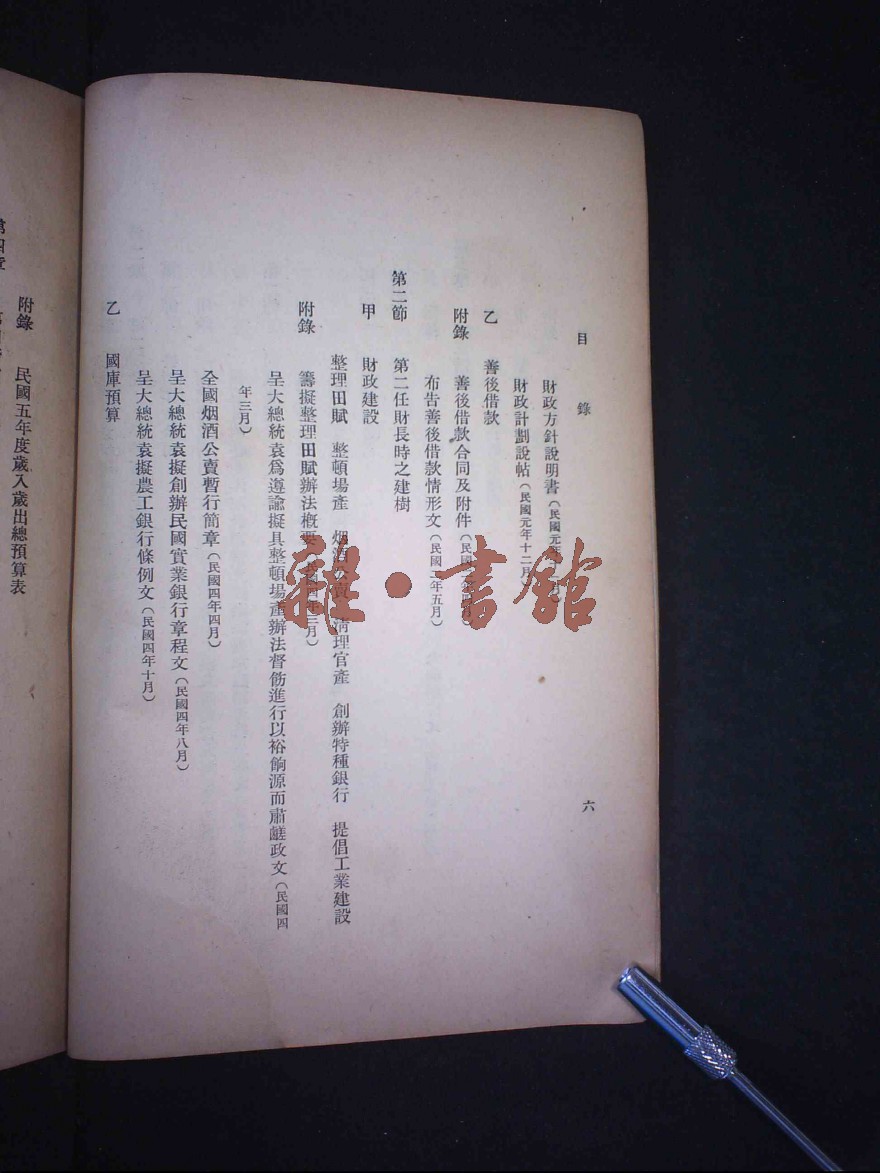 目錄 六
財政方針說明書(民國元年 月)
財政計劃說帖(民國元年十二月)
乙 善後借款
附錄 善後借款合同及附件(民國 年 月)
布吿善後借款情形文(民國二年五月)
第二節 第二任財長時之建樹
甲 財政建設
整理田賦 整頓場產 烟酒公賣 淸理官產 創辦特種銀行 提倡工業建設
附錄 籌擬整理田賦辦法槪要(民國四年 月)
呈大總統袁爲遵諭擬具整頓場產辦法督飭進行以裕餉源而肅鹺政文(民國四
年三月)
全國烟酒公賣暫行簡章(民國四年四月)
呈大總統袁擬創辦民國實業銀行章程文(民國四年八月)
呈大總統袁擬農工銀行條例文(民國四年十月)
乙 國庫預算
附錄 民國五年度歲入歲出總預算表
第四章
雜·書館